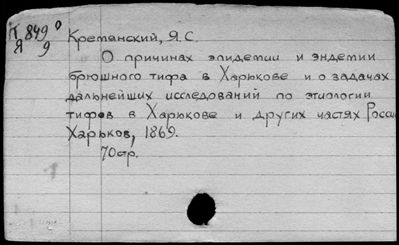 К 849⁰
Я 9
Кремянский, Я. С.
О причинах эпидемии и эндемии
брюшного тифа в Харькове и о задачах
дальнейших исследований по этиологии
тифов в Харькове и других частях Росси
Харьков, 1869.
70стр.